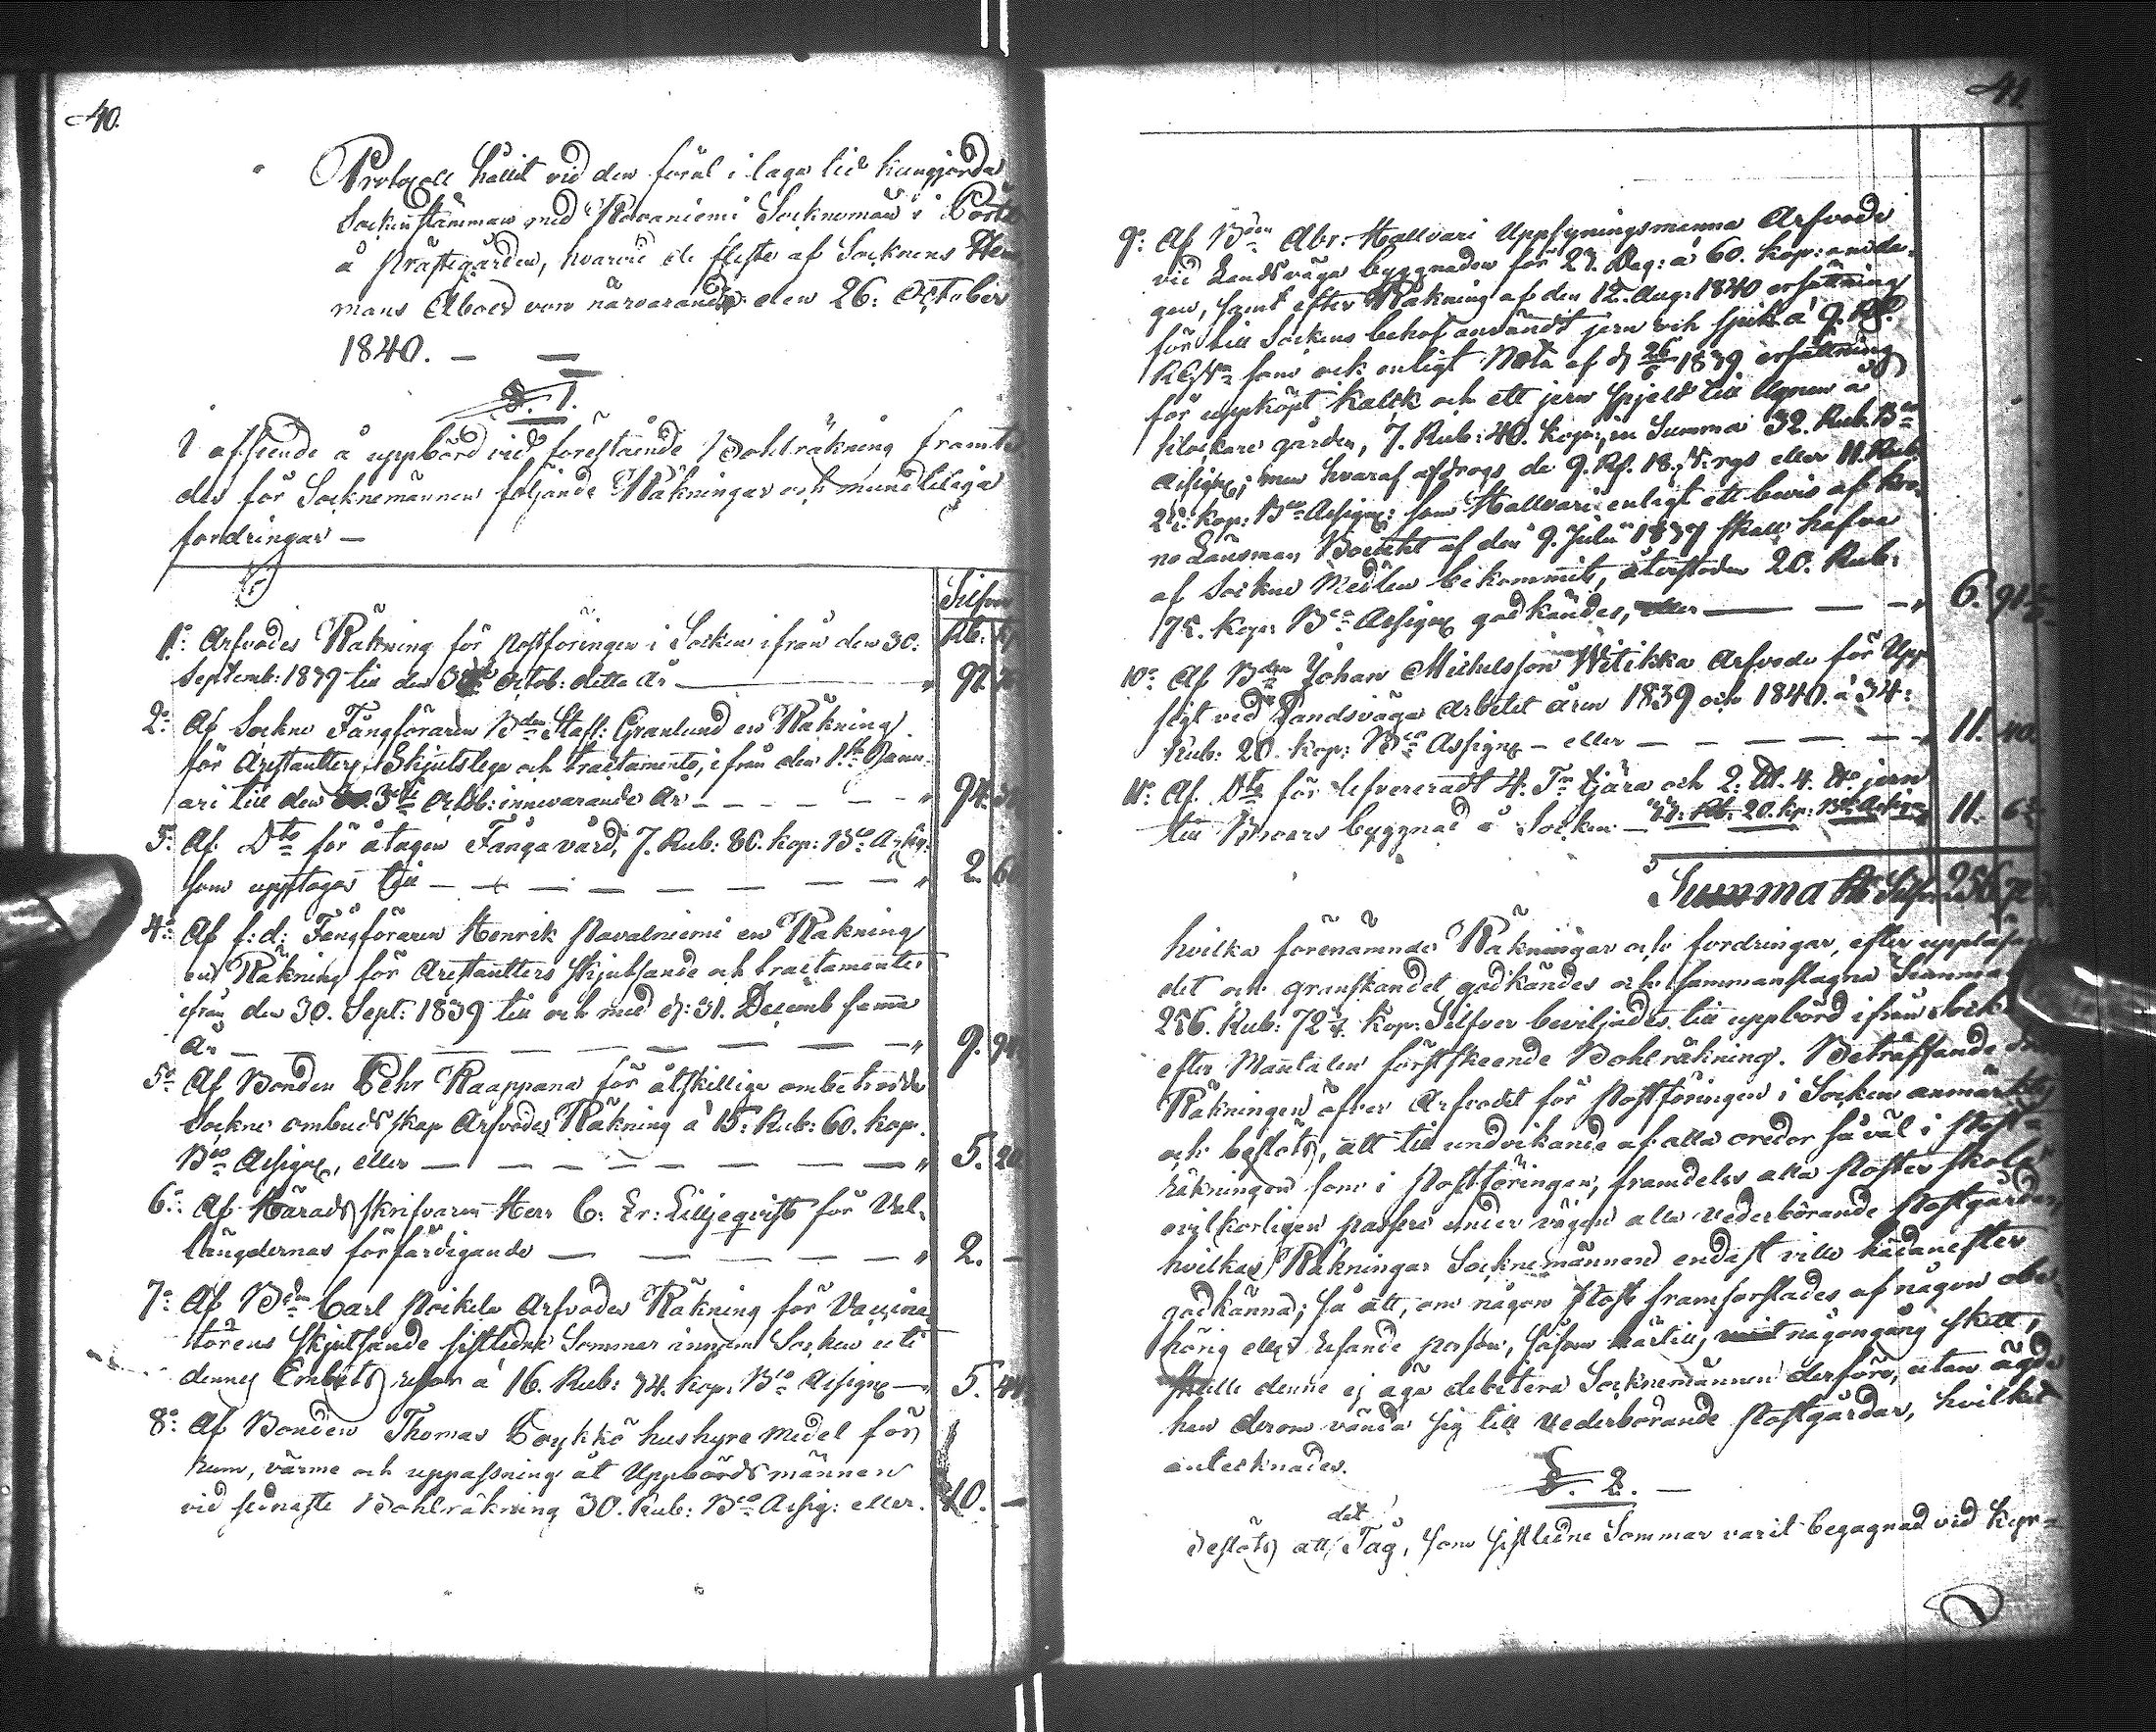 40.
Protocoll hållit vid den förut i laga tid kungjorda
Sockenstämman med Rovaniemi Socknemän i
å Prästegården, hvarvid de fleste af Socknens
mans Åboer voro närvarande: den 26: October
1840. —
§. 1.
I afseende å uppbörd vid förestående Bohlräkning
des för Socknemännen följande Räkningar och mundtliga
fordringar —
Silfver
Rb: Kp
1:o Arfvodes Räkning för postföringen i Socken ifrån den 30:
Septemb: 1839 till den Octob: detta År — 97.
2:o Af Sockne Fångföraren B:den Staff: Granlund en Räkning
för Arestanters Skjutslega och tractamente, ifrån den 1:ste Janu-
ari till den Octob: innevarande År — 94.
3:o Af D:to för åtagen Fånga vård, 7. Rub: 80. kop: B:co Assig:
som upptages till — 2. 60
4:o Af f: d: Fångföraren Henrik Pavalniemi en Räkning
en Räkning för Arestanters skjutsande och tractamenter
ifrån den 30. Sept: 1839 till och med d: 31. Decemb samma
År — 9.
5:o Af Bonden Pehr Kaappana för åtskillige ombetrodde
Sockne ombudsskap Arfvodes Räkning à 15. Rub: 60. kop.
B:co Assigne, eller — 5. 20
6:o Af Häradsskrifvaren Herr C: Er: Lilljeqvist för Val-
längdernas förfärdigande — 2. —
7:o Af B:den Carl Poikela Arfvodes Räkning för Vaccina-
törens skjutsande sistledne Sommar innom Socken uti
dennes Embets resor à 16. Rub: 34. kop. B:co Assigne — 5.
8:o Af Bonden Thomas Poykkö hushyre medel för
rum, värme och uppassning åt Uppbördsmännen
vid sednaste Bohlräkning 30. Rub: B:co Assig: eller. 10. —
41
9:o Af B:den Abr: Hallvari Uppsyningsmanna Arfvode
vid Landsvägs byggnaden för 27. Dag: à 60. kop: om da-
gen, samt efter Räkning af den 12. Aug: 1840 ersättning
för till Sockens behof användt jern och spik à 9. Rd.
som ock enligt Nota af d 26 1839 ersättning
för uppköpt kalk och ett jern spjeld till Ugnen å
klockare gården, 7. Rub: 40. kop:, in Summa 32. Rub. B:co
Assigne; men hvaraf afdrogs de 9. Rd. 18. rgs eller 11. Rub.
kop: B:co Assigne: som Hallvari enligt ett bevis af Kro-
no Länsman af den 9. Julii 1839 skall hafva
af Sockne Medlen bekommit, återstoden 20. Rub:
75. kop: B:co Assigne godkändes, eller — 6. 91
10:o Af B:den Johan Michelsson Witikka Arfvode för Upp-
sigt vid Landsvägs Arbetet åren 1839 och 1840. à 34:
Rub: 20. kop: B:co Assigne — eller — 11. 40.
11:o Af D:to för lefvereradt 4. T:r tjära och 2. 4. jern
till byggnad å Socken — Rb: 20. kp: B:co Assigne 11. 6
Summa Rb Silfver 256. 72
hvilka förenämnde Räkningar och fordringar, efter
det och granskandet godkändes och sammanslagna Summa
256. Rub: 72 kop: Silfver beviljades till uppbörd ifrån
efter Mantalen förstskeende Bohlräkning. Beträffande
Räkningen öfver Arfvodet för Postföringen i Socken anmärktes
och beslöts, att till undvikande af alla oredor så väl i Post-
räkningen som i Postföringen, framdeles alla Poster skola
ovilkorligen passera under vägen alla vederbörande Postgårdar,
hvilkas Räkningar Socknemännen endast ville hädanefter
godkänna; så att, om någon Post framforslades af någon obe-
hörig eller resande person, såsom härtill, någongång skett,
skulle denne ej äga debitera Socknemännen derföre, utan ägde
han derom vända sig till vederbörande Postgårdar, hvilket
antecknades.
§. 2. —
Beslöts att det Tåg, som sistledne Sommar varit begagnad vid Kyr-